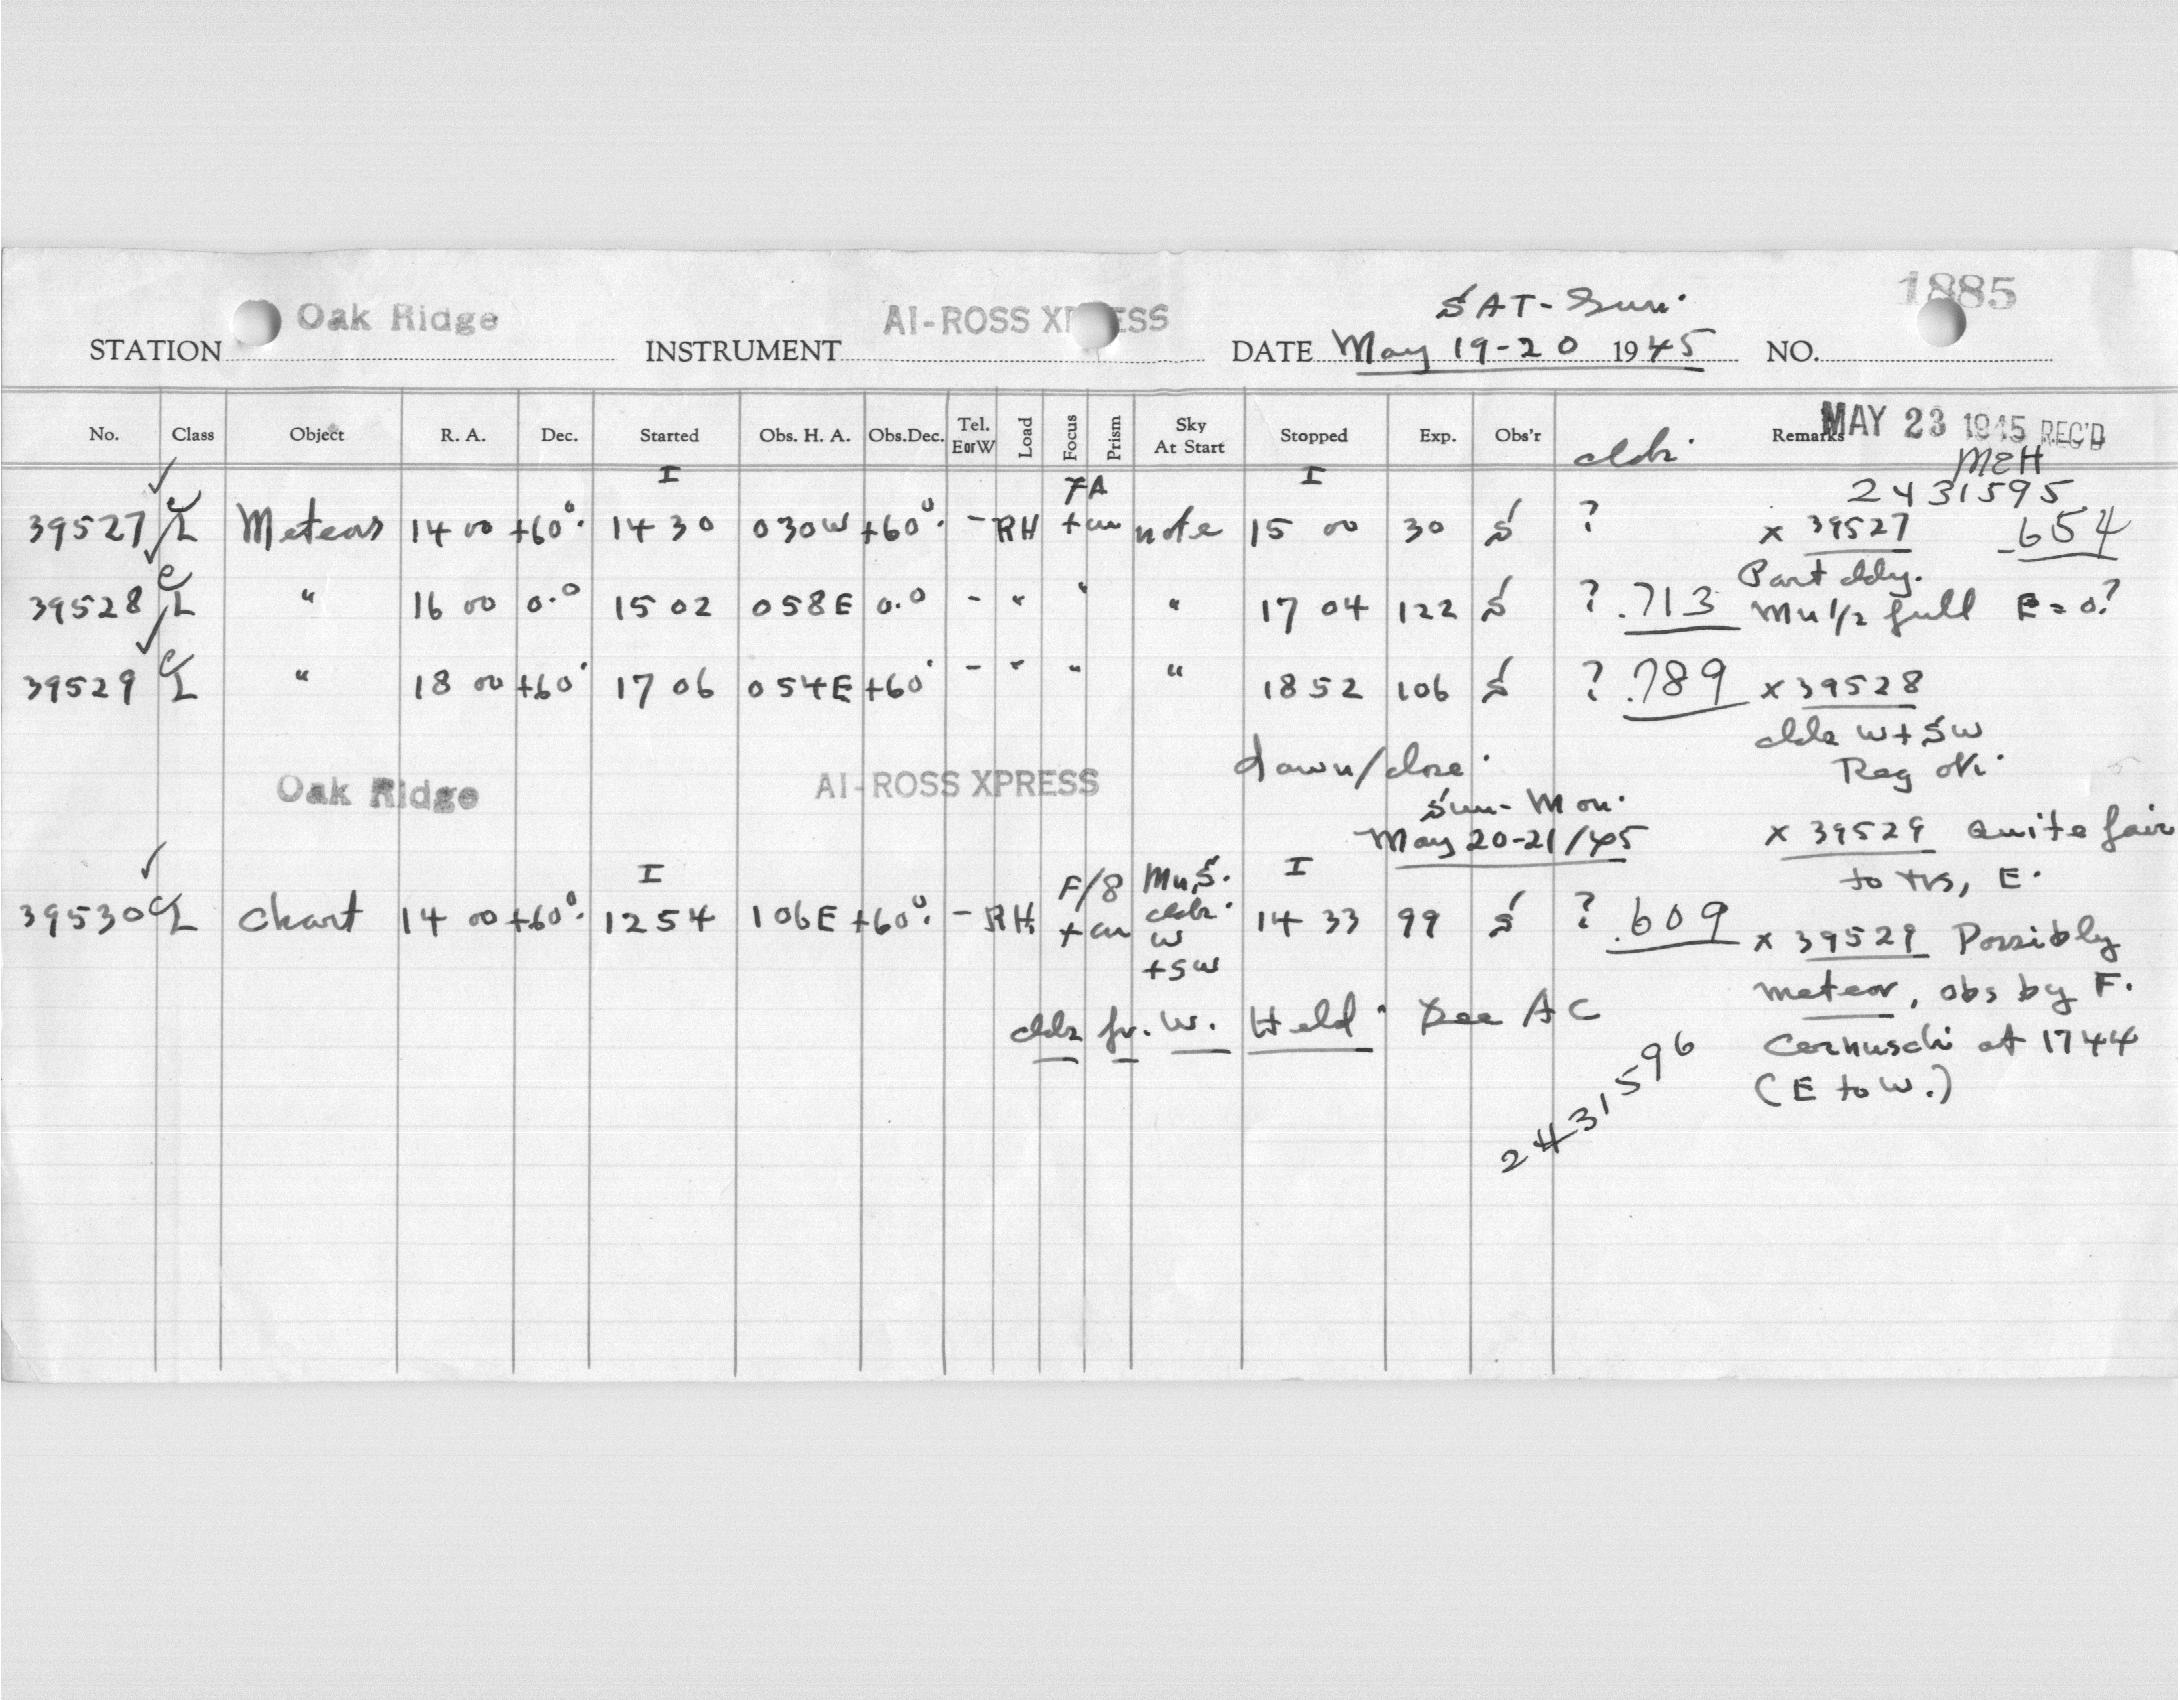 1885
Oak Ridge AI-ROSS XPRESS SAT-Sun.
STATION INSTRUMENT DATE May 19-20 1945 NO.
No. Class Object R. A. Dec. Started Obs. H. A. Obs.Dec. Tel. E or W Load Focus Prism Sky At Start Stopped Exp. Obs'r Remarks
MAY 23 1945 REC'D
MEH
clds.
I I
2431595
39527 L Meteors 14 00 +60° 14 30 030W +60° - RH note 15 00 30 S ? x 39527 .654
Part cldy.
39528 L " 16 00 0.0 15 02 058E 0.0 - " " " 17 04 122 S ? .713 Mn 1/2 full E = 0?
39529 L " 18 00 +60° 17 06 054E +60° - " " " 18 52 106 S ? .789 x 39528
clds W + SW
Reg ok.
dawn/close.
Oak Ridge AI-ROSS XPRESS
Sun-Mon.
May 20-21/45
x 39529 Quite fair
to trs, E.
I I
39530 L Chart 14 00 +60° 12 54 106E +60° - RH F/8 Mn, S. clds. W + SW 14 33 99 S ? .609
x 39529 Possibly
meteor, obs by F.
Cernuschi at 1744
(E to W.)
clds fr. W. Held. See AC
2431596